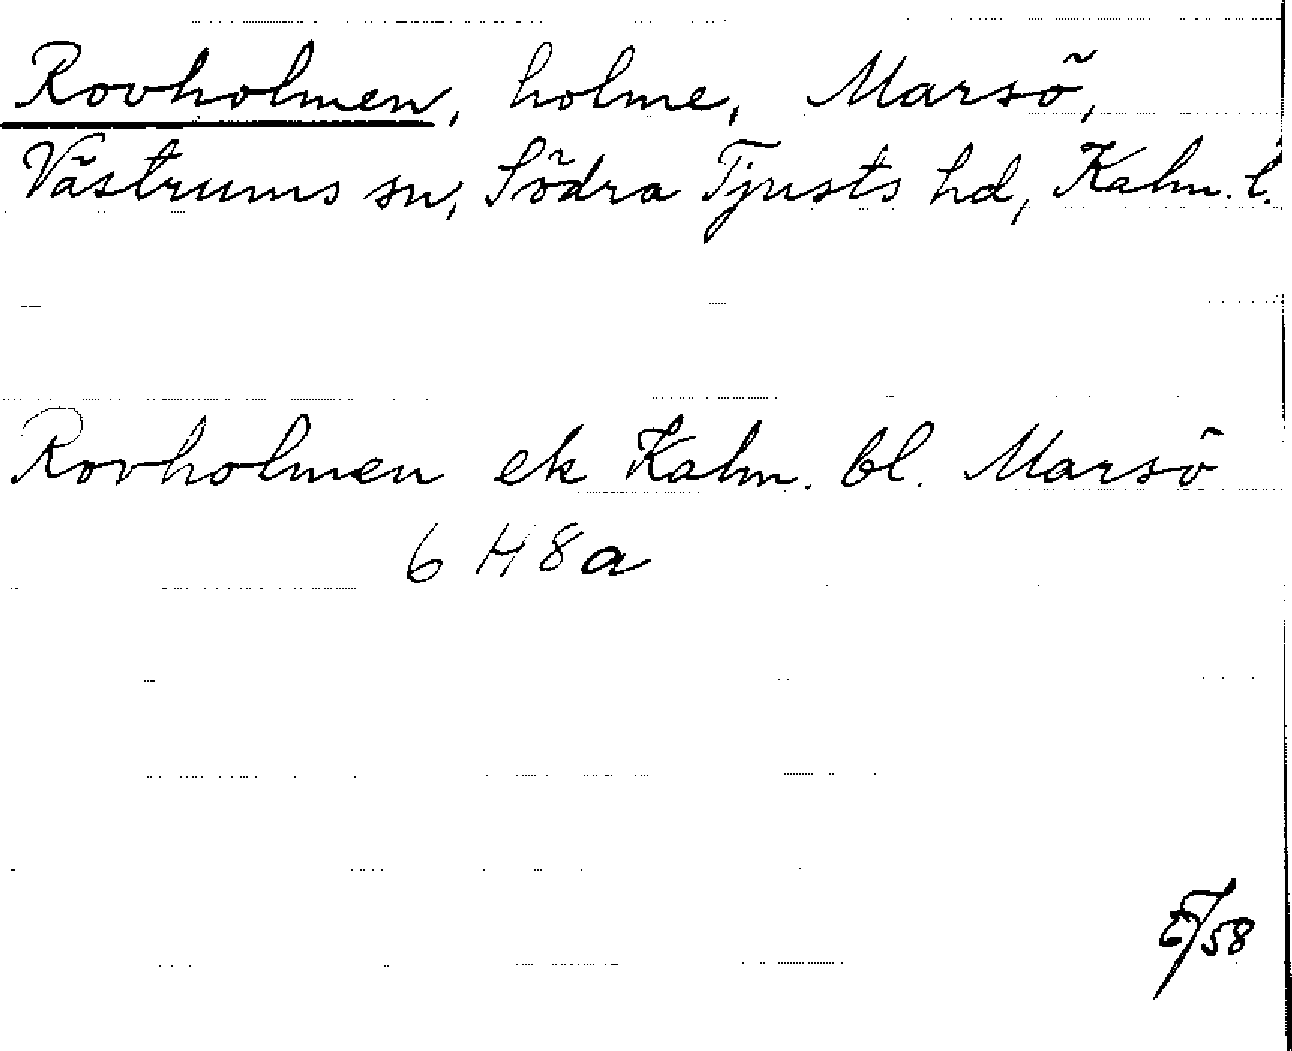 Rovholmen, holme, Marsö,
Västrums sn, Södra Tjusts hd, Kalm. l.
Rovholmen ek Kalm. bl. Marsö
6 H 8 a
/58